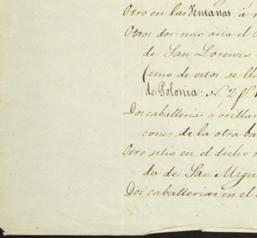 Otro en las Ventanas. á
Otros dos: uno en el
de San Lorenzo
(uno de estos se ll
de Polonia: N.º 2 fl.
Dos caballerias á orillas
cones, de la otra ba
Otro sitio en el dicho
da de San Migu
Dos caballerias en el